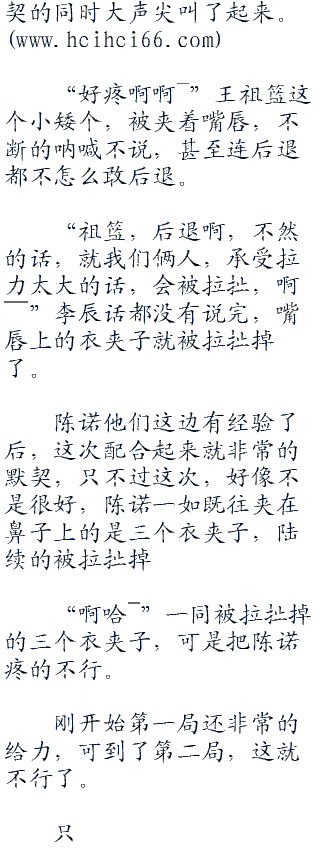 契的同时大声尖叫了起来。
(www.hcihci66.com)
“好疼啊啊¯”王祖篮这
个小矮个，被夹着嘴唇，不
断的呐喊不说，甚至连后退
都不怎么敢后退。
“祖篮，后退啊，不然
的话，就我们俩人，承受拉
力太大的话，会被拉扯，啊
¯¯”李辰话都没有说完，嘴
唇上的衣夹子就被拉扯掉
了。
陈诺他们这边有经验了
后，这次配合起来就非常的
默契，只不过这次，好像不
是很好，陈诺一如既往夹在
鼻子上的是三个衣夹子，陆
续的被拉扯掉
“啊哈¯”一同被拉扯掉
的三个衣夹子，可是把陈诺
疼的不行。
刚开始第一局还非常的
给力，可到了第二局，这就
不行了。
只